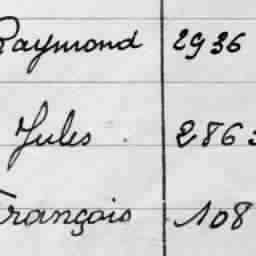 Raymond 2936
Jules 2863
François 108